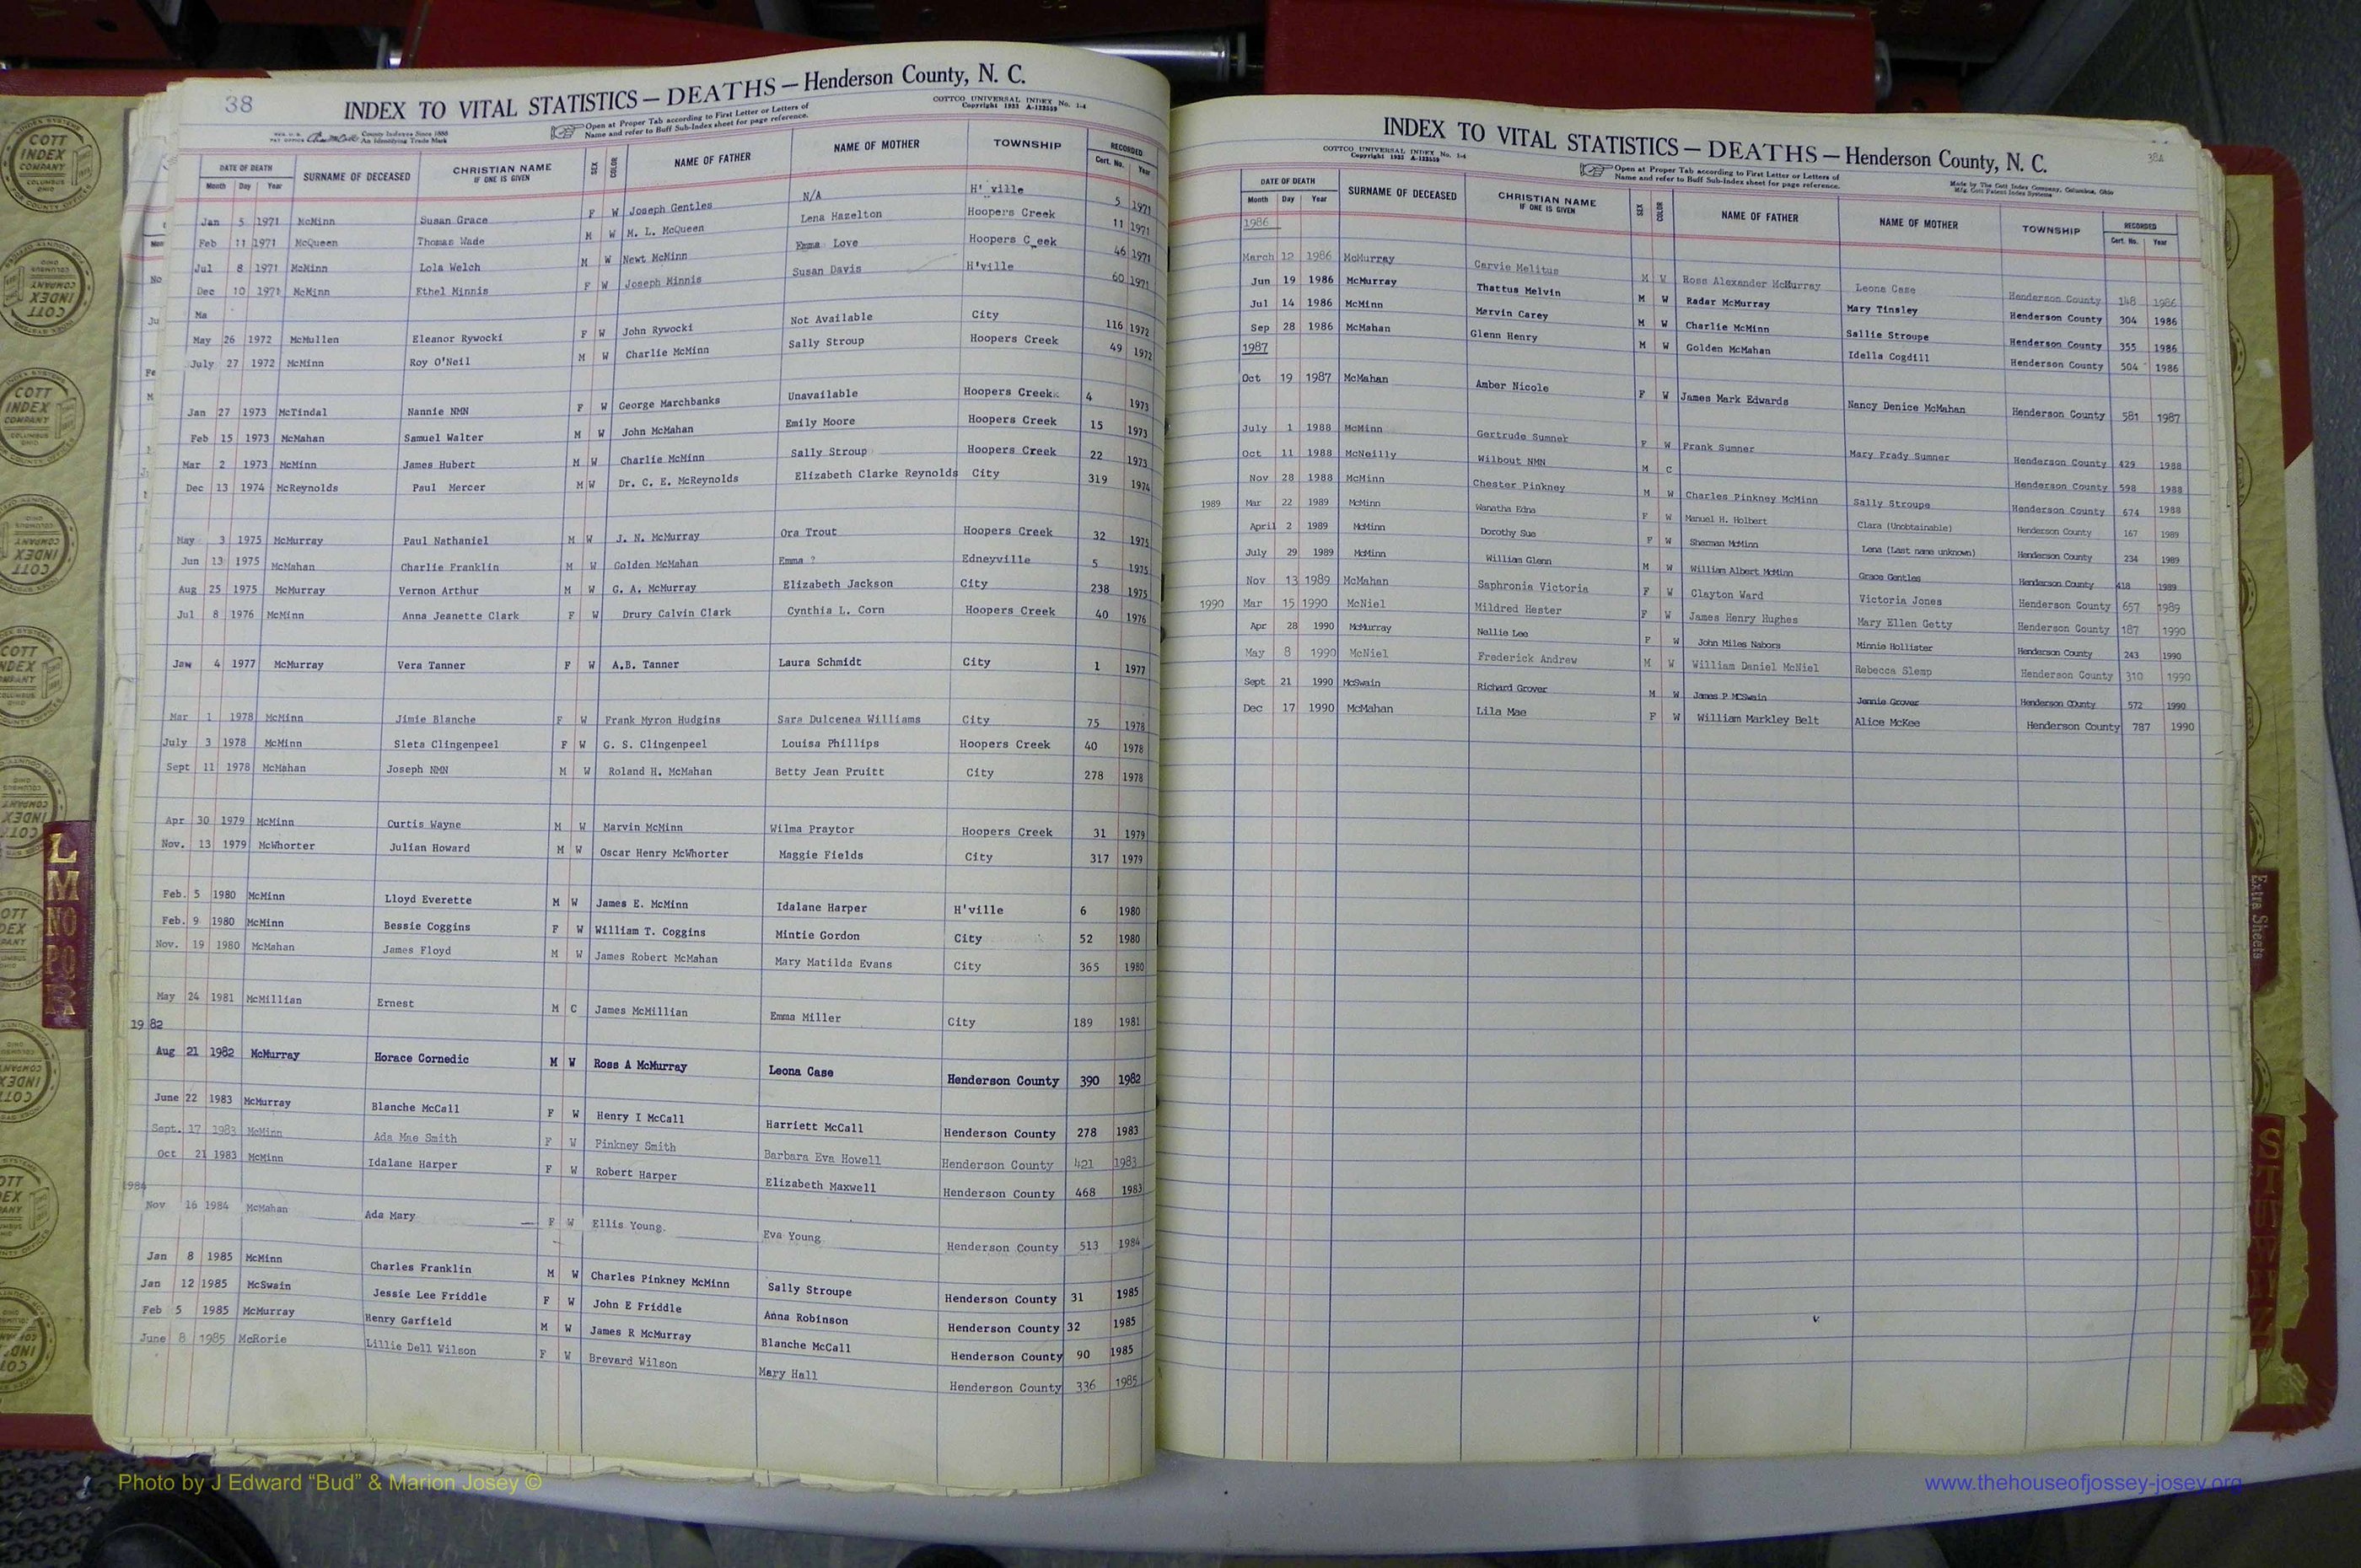 38
INDEX TO VITAL STATISTICS — DEATHS — Henderson County, N. C.
COTTCO UNIVERSAL INDEX No. 1-4
Copyright 1933 A-123559
County Indexes Since 1888
An Identifying Trade Mark
Open at Proper Tab according to First Letter or Letters of
Name and refer to Buff Sub-Index sheet for page reference.
DATE OF DEATH SURNAME OF DECEASED CHRISTIAN NAME IF ONE IS GIVEN SEX COLOR NAME OF FATHER NAME OF MOTHER TOWNSHIP RECORDED
Month Day Year Cert. No. Year
Jan 5 1971 McMinn Susan Grace F W Joseph Gentles N/A H' ville 5 1971
Feb 11 1971 McQueen Thomas Wade M W M. L. McQueen Lena Hazelton Hoopers Creek 11 1971
Jul 8 1971 McMinn Lola Welch M W Newt McMinn Emma Love Hoopers C eek 46 1971
Dec 10 1971 McMinn Ethel Minnis F W Joseph Minnis Susan Davis H'ville 60 1971
Ma
May 26 1972 McMullen Eleanor Rywocki F W John Rywocki Not Available City 116 1972
July 27 1972 McMinn Roy O'Neil M W Charlie McMinn Sally Stroup Hoopers Creek 49 1972
Jan 27 1973 McTindal Nannie NMN F W George Marchbanks Unavailable Hoopers Creek 4 1973
Feb 15 1973 McMahan Samuel Walter M W John McMahan Emily Moore Hoopers Creek 15 1973
Mar 2 1973 McMinn James Hubert M W Charlie McMinn Sally Stroup Hoopers Creek 22 1973
Dec 13 1974 McReynolds Paul Mercer M W Dr. C. E. McReynolds Elizabeth Clarke Reynolds City 319 1974
May 3 1975 McMurray Paul Nathaniel M W J. N. McMurray Ora Trout Hoopers Creek 32 1975
Jun 13 1975 McMahan Charlie Franklin M W Golden McMahan Emma ? Edneyville 5 1975
Aug 25 1975 McMurray Vernon Arthur M W G. A. McMurray Elizabeth Jackson City 238 1975
Jul 8 1976 McMinn Anna Jeanette Clark F W Drury Calvin Clark Cynthia L. Corn Hoopers Creek 40 1976
Jan 4 1977 McMurray Vera Tanner F W A.B. Tanner Laura Schmidt City 1 1977
Mar 1 1978 McMinn Jimie Blanche F W Frank Myron Hudgins Sara Dulcenea Williams City 75 1978
July 3 1978 McMinn Sleta Clingenpeel F W G. S. Clingenpeel Louisa Phillips Hoopers Creek 40 1978
Sept 11 1978 McMahan Joseph NMN M W Roland H. McMahan Betty Jean Pruitt City 278 1978
Apr 30 1979 McMinn Curtis Wayne M W Marvin McMinn Wilma Praytor Hoopers Creek 31 1979
Nov. 13 1979 McWhorter Julian Howard M W Oscar Henry McWhorter Maggie Fields City 317 1979
Feb. 5 1980 McMinn Lloyd Everette M W James E. McMinn Idalane Harper H'ville 6 1980
Feb. 9 1980 McMinn Bessie Coggins F W William T. Coggins Mintie Gordon City 52 1980
Nov. 19 1980 McMahan James Floyd M W James Robert McMahan Mary Matilda Evans City 365 1980
May 24 1981 McMillian Ernest M C James McMillian Emma Miller City 189 1981
1982
Aug 21 1982 McMurray Horace Cornedic M W Ross A McMurray Leona Case Henderson County 390 1982
June 22 1983 McMurray Blanche McCall F W Henry I McCall Harriett McCall Henderson County 278 1983
Sept. 17 1983 McMinn Ada Mae Smith F W Pinkney Smith Barbara Eva Howell Henderson County 421 1983
Oct 21 1983 McMinn Idalane Harper F W Robert Harper Elizabeth Maxwell Henderson County 468 1983
1984
Nov 16 1984 McMahan Ada Mary F W Ellis Young. Eva Young Henderson County 513 1984
Jan 8 1985 McMinn Charles Franklin M W Charles Pinkney McMinn Sally Stroupe Henderson County 31 1985
Jan 12 1985 McSwain Jessie Lee Friddle F W John E Friddle Anna Robinson Henderson County 32 1985
Feb 5 1985 McMurray Henry Garfield M W James R McMurray Blanche McCall Henderson County 90 1985
June 8 1985 McRorie Lillie Dell Wilson F W Brevard Wilson Mary Hall Henderson County 336 1985
INDEX TO VITAL STATISTICS — DEATHS — Henderson County, N. C.
38A
COTTCO UNIVERSAL INDEX No. 1-4
Copyright 1933 A-123559
Open at Proper Tab according to First Letter or Letters of
Name and refer to Buff Sub-Index sheet for page reference.
Made by The Cott Index Company, Columbus, Ohio
Mfg. Cott Patent Index Systems
DATE OF DEATH SURNAME OF DECEASED CHRISTIAN NAME IF ONE IS GIVEN SEX COLOR NAME OF FATHER NAME OF MOTHER TOWNSHIP RECORDED
Month Day Year Cert. No. Year
1986
March 12 1986 McMurray Carvie Melitus M W Ross Alexander McMurray Leona Case Henderson County 148 1986
Jun 19 1986 McMurray Thattus Melvin M W Radar McMurray Mary Tinsley Henderson County 304 1986
Jul 14 1986 McMinn Marvin Carey M W Charlie McMinn Sallie Stroupe Henderson County 355 1986
Sep 28 1986 McMahan Glenn Henry M W Golden McMahan Idella Cogdill Henderson County 504 1986
1987
Oct 19 1987 McMahan Amber Nicole F W James Mark Edwards Nancy Denice McMahan Henderson County 581 1987
July 1 1988 McMinn Gertrude Sumner F W Frank Sumner Mary Frady Sumner Henderson County 429 1988
Oct 11 1988 McNeilly Wilbout NMN M C Henderson County 598 1988
Nov 28 1988 McMinn Chester Pinkney M W Charles Pinkney McMinn Sally Stroupe Henderson County 674 1988
1989 Mar 22 1989 McMinn Wanatha Edna F W Manuel H. Holbert Clara (Unobtainable) Henderson County 167 1989
April 2 1989 McMinn Dorothy Sue F W Sherman McMinn Lena (Last name unknown) Henderson County 234 1989
July 29 1989 McMinn William Glenn M W William Albert McMinn Grace Gentles Henderson County 418 1989
Nov 13 1989 McMahan Saphronia Victoria F W Clayton Ward Victoria Jones Henderson County 657 1989
1990 Mar 15 1990 McNiel Mildred Hester F W James Henry Hughes Mary Ellen Getty Henderson County 187 1990
Apr 28 1990 McMurray Nellie Lee F W John Miles Nabors Minnie Hollister Henderson County 243 1990
May 8 1990 McNiel Frederick Andrew M W William Daniel McNiel Rebecca Slemp Henderson County 310 1990
Sept 21 1990 McSwain Richard Grover M W James P McSwain Jennie Grover Henderson County 572 1990
Dec 17 1990 McMahan Lila Mae F W William Markley Belt Alice McKee Henderson County 787 1990
COTT INDEX COMPANY COLUMBUS OHIO
L
M
NO
PQ
R
Extra Sheets
S
T
UV
W
Photo by J Edward “Bud” & Marion Josey ©
www.thehouseofjossey-josey.org